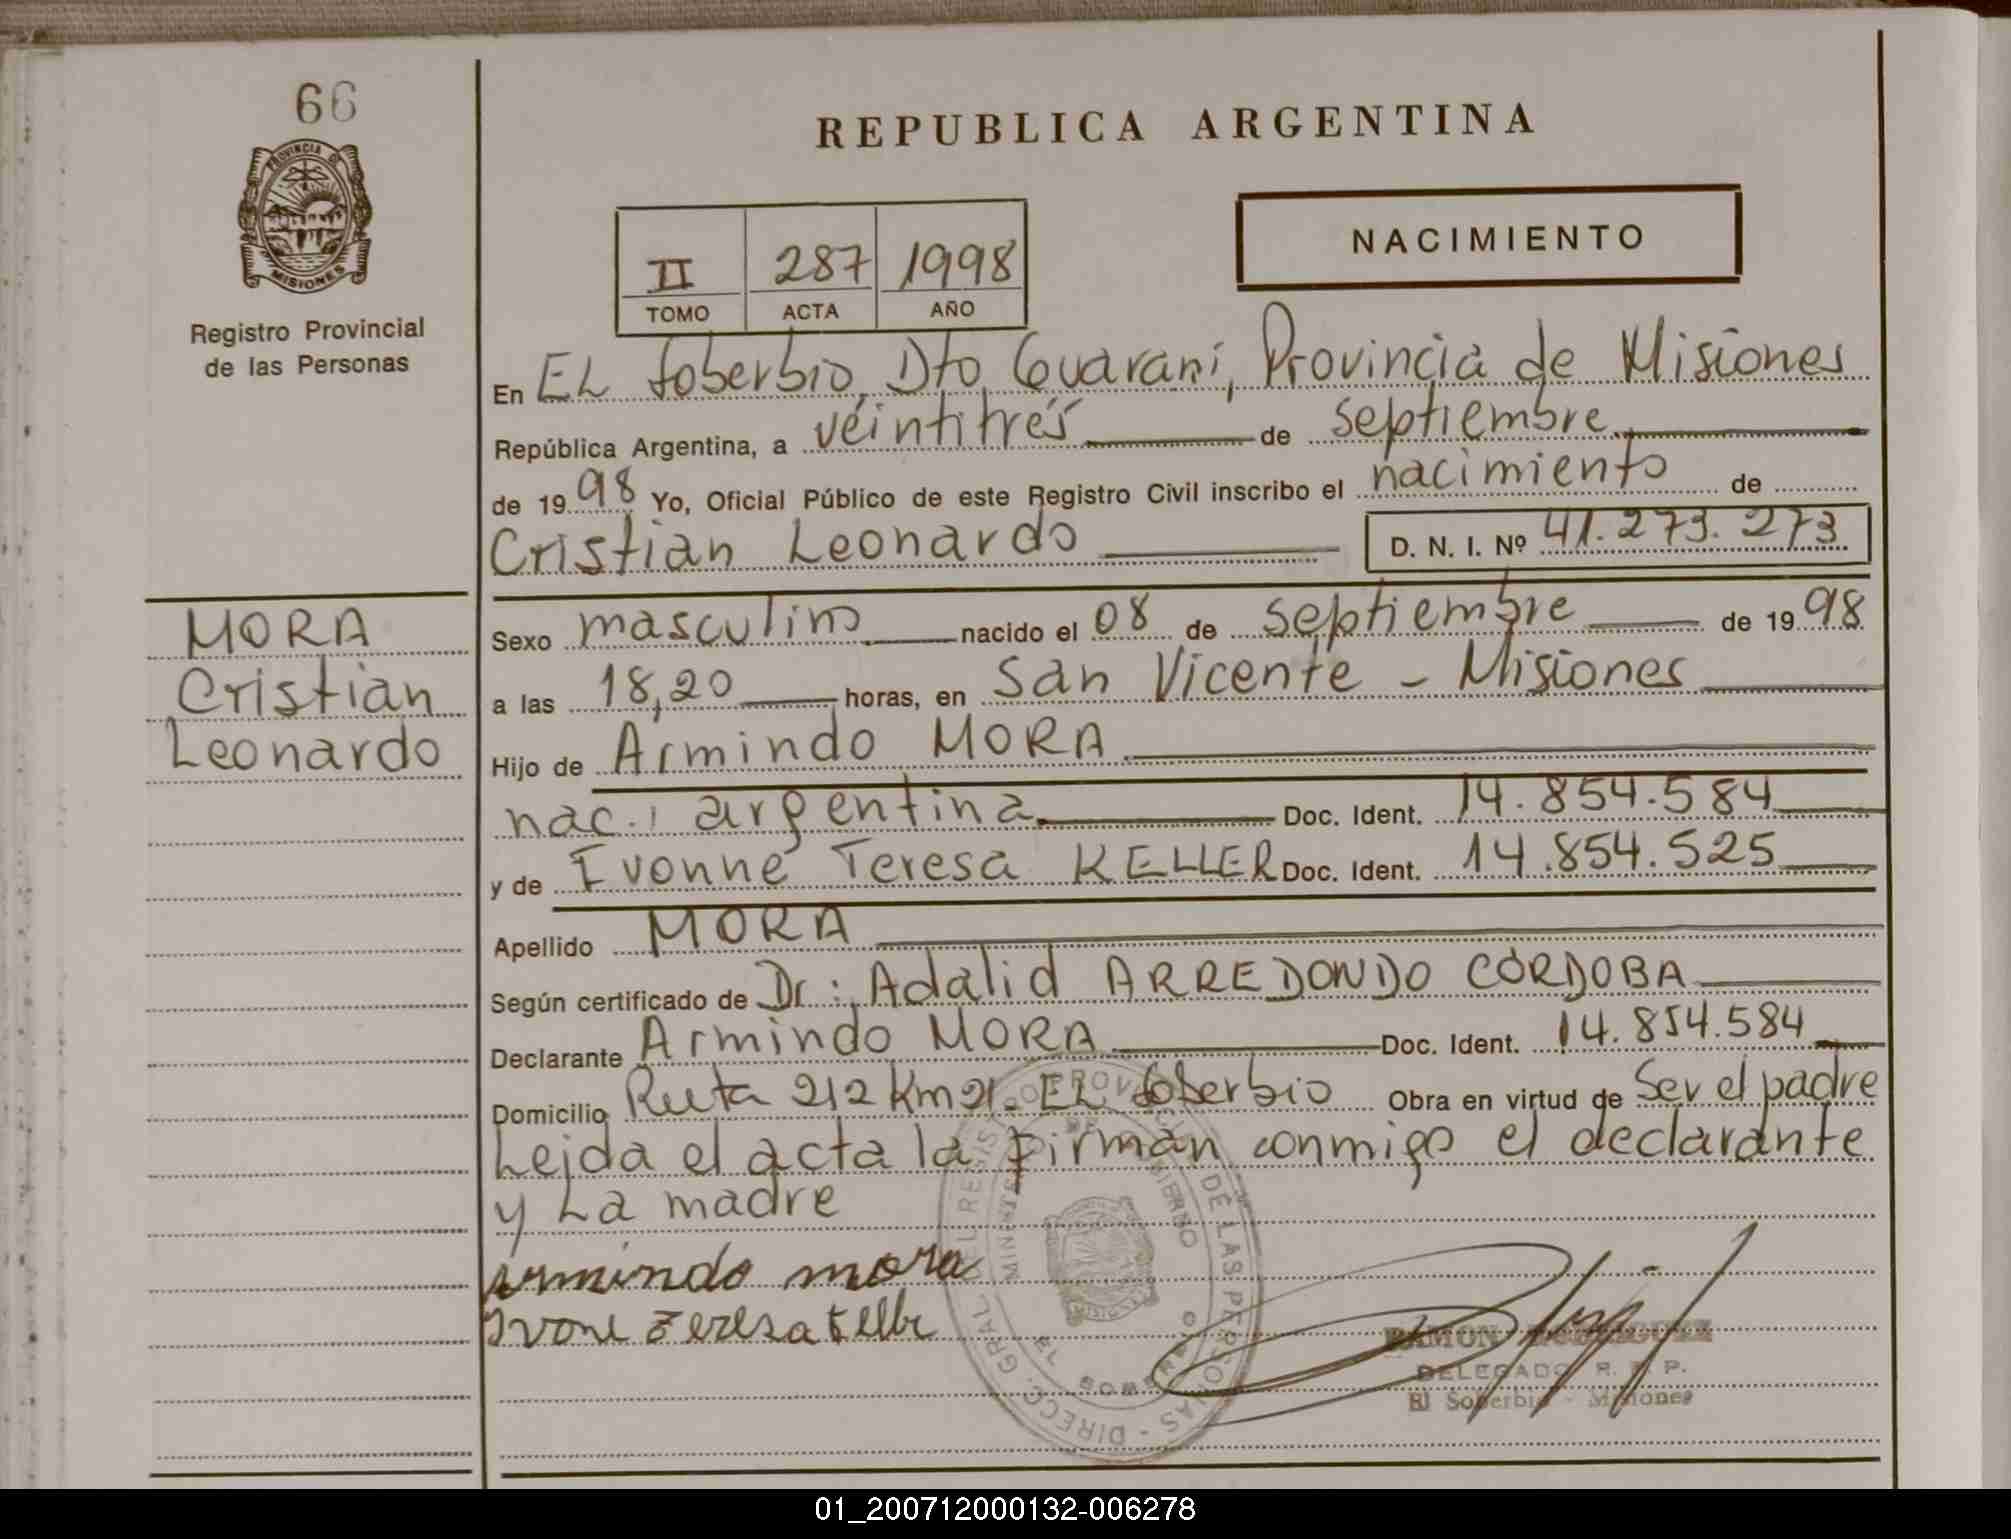 66
PROVINCIA DE
MISIONES
Registro Provincial
de las Personas
MORA
Cristian
Leonardo
REPUBLICA ARGENTINA
II 287 1998
TOMO ACTA AÑO
NACIMIENTO
En EL Soberbio, Dto Guaraní, Provincia de Misiones
República Argentina, a veintitrés de septiembre
de 1998 Yo, Oficial Público de este Registro Civil inscribo el nacimiento de
Cristian Leonardo D. N. I. Nº 41.273.273
Sexo masculino nacido el 08 de septiembre de 1998
a las 18,20 horas, en San Vicente - Misiones
Hijo de Armindo MORA
nac.: argentina Doc. Ident. 14.854.584
y de Ivonne Teresa KELLER Doc. Ident. 14.854.525
Apellido MORA
Según certificado de Dr: Adalid ARREDONDO CÓRDOBA
Declarante Armindo MORA Doc. Ident. 14.854.584
Domicilio Ruta 212 Km 21. EL Soberbio Obra en virtud de Ser el padre
Leida el acta la firman conmigo el declarante
y La madre
armindo mora
Ivone Teresa Keller
DIRECC. GRAL. DEL REGISTRO PROVINCIAL DE LAS PERSONAS
EL SOBERBIO
MISIONES
RAMON
DELEGADO R. P. P.
El Soberbio - Misiones
01_200712000132-006278